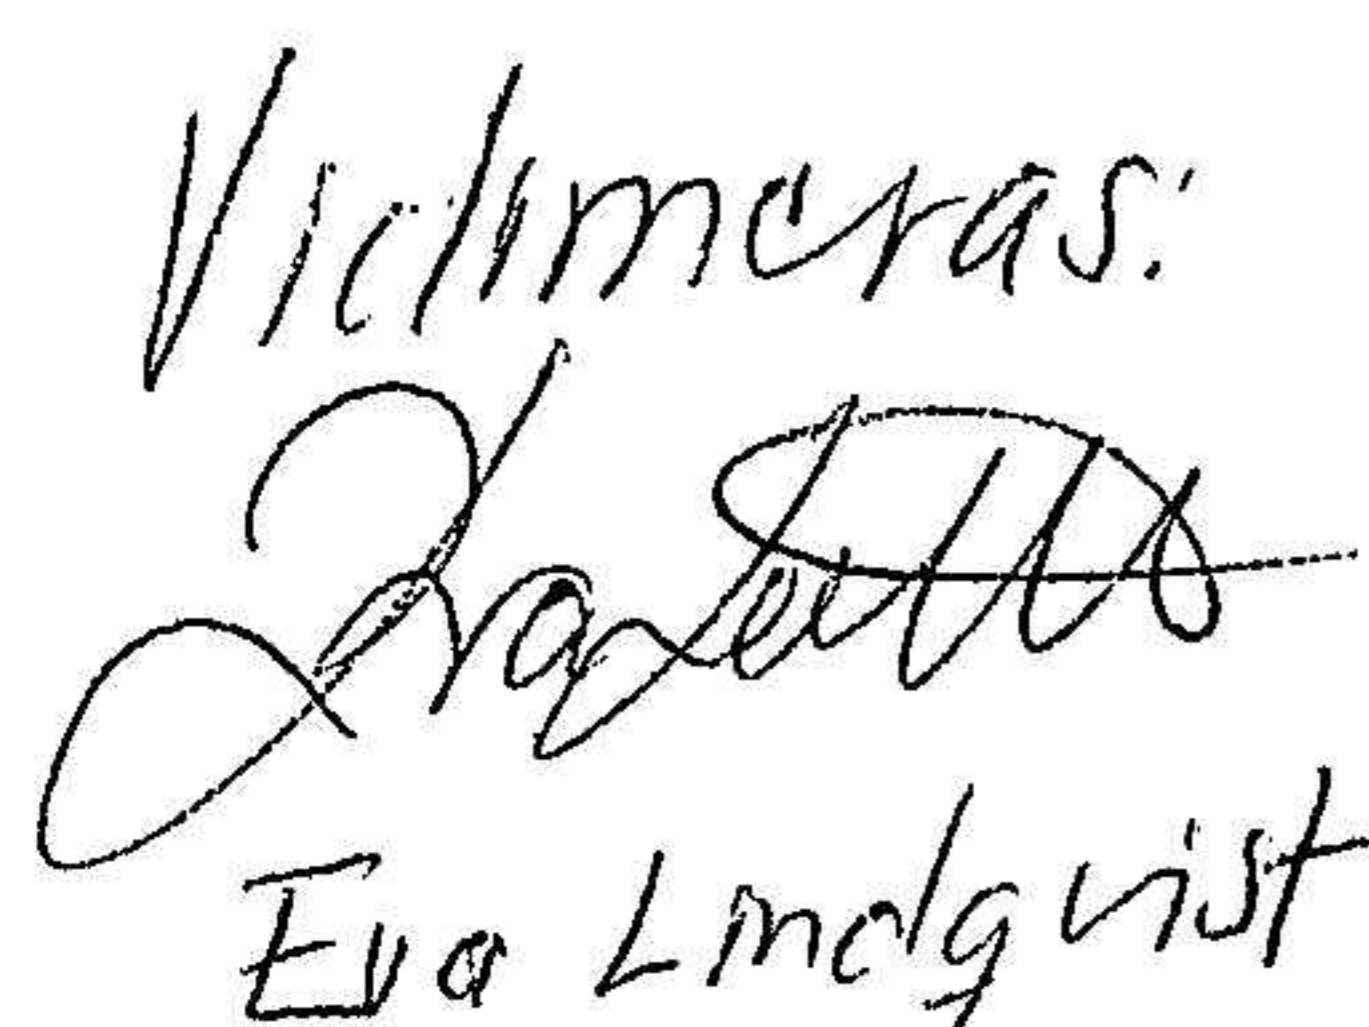 Vidimeras:
Eva Lindqvist